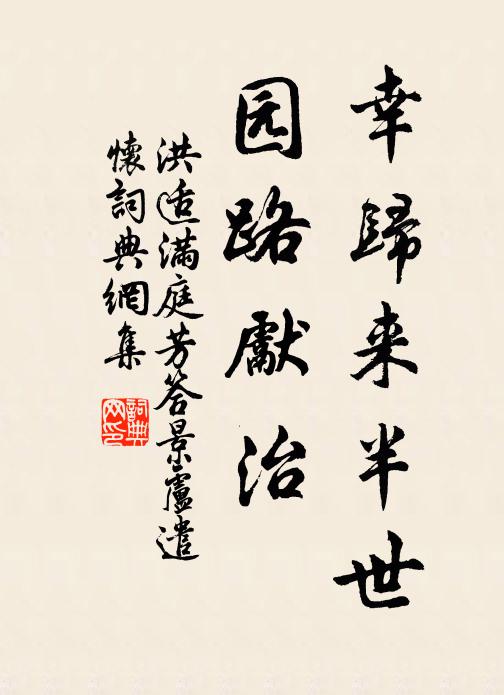 幸歸来半世
园路治
洪适滿庭芳答景盧遣
懷詞典網集
詞典
网印